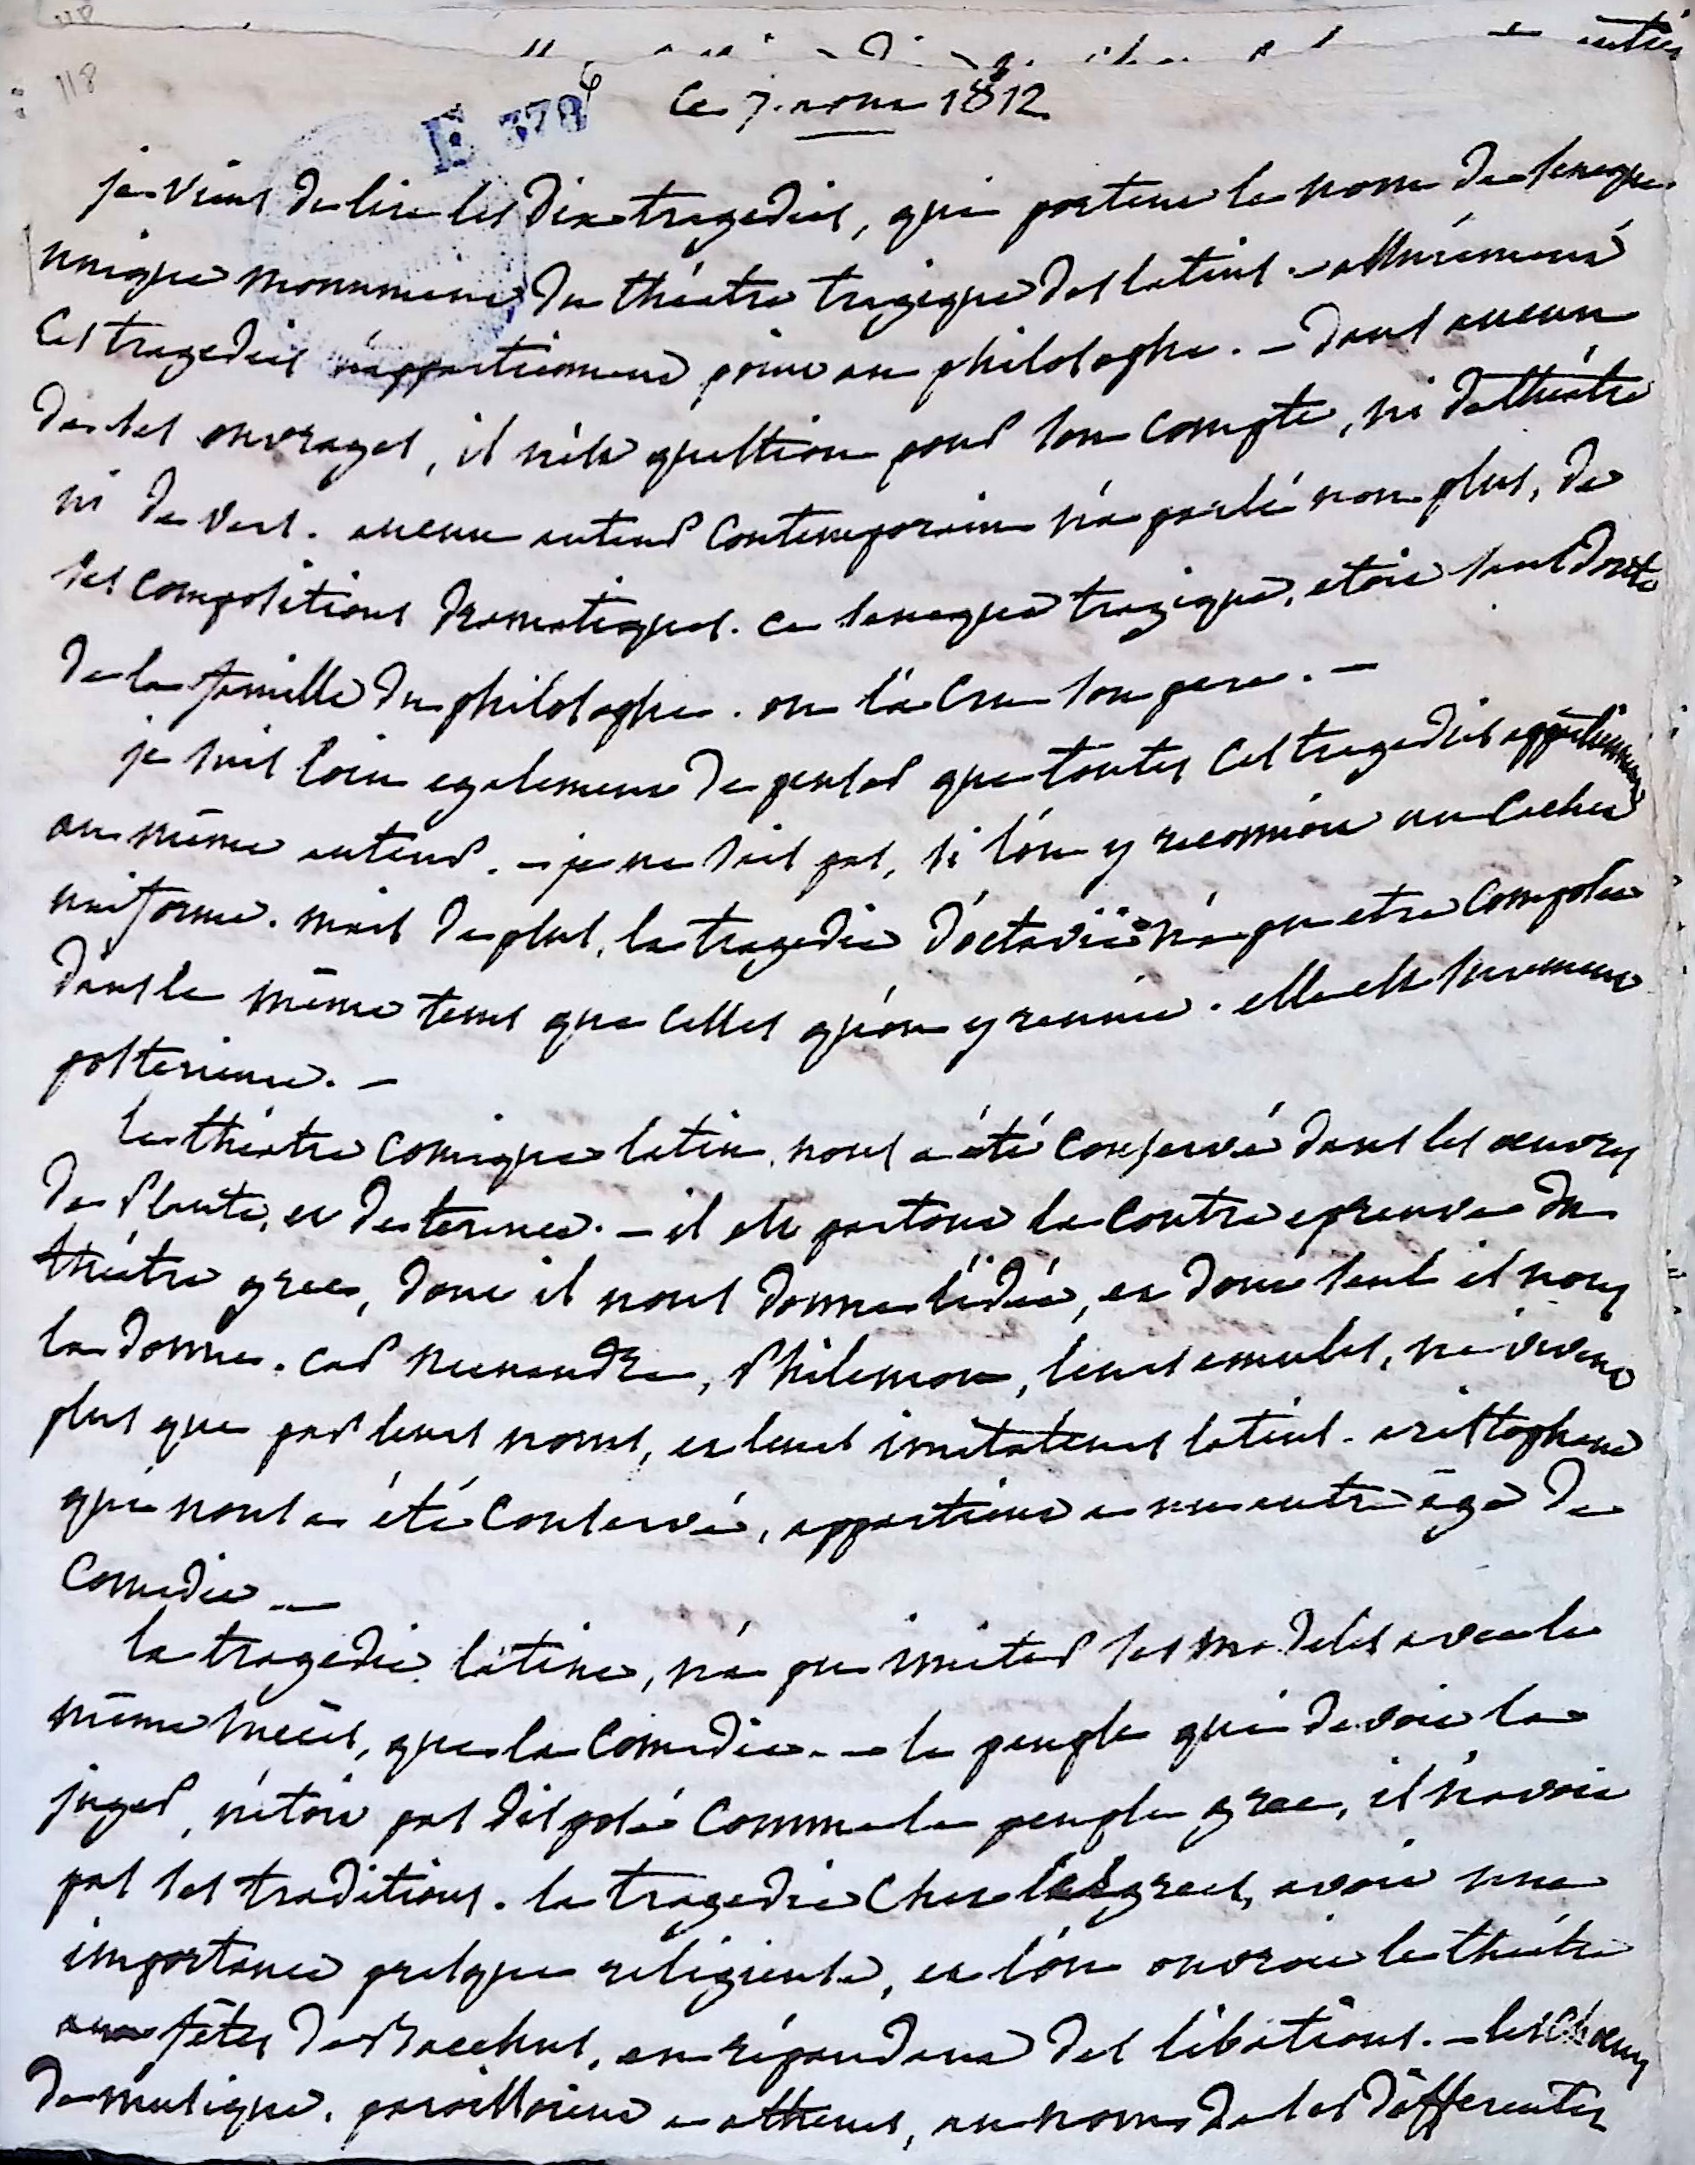 118
E 378
6
Ce 7. nov. 1812.
je viens de lire les dix tragedies, qui portent le nom de seneque
unique monument du théatre tragique des latins. assurément
ces tragedies n'appartiennent point au philosophe. – dans aucun
de ses ouvrages, il n'est question pour son compte, ni de théatre
ni de vers. aucun auteur contemporain n'a parlé non plus, de
ses compositions dramatiques. ce seneque tragique, etoit sans doute
de la famille du philosophe. on l'a cru son pere. –
je suis loin egalement de penser que toutes ces tragedies appartiennent
au même auteur. – je ne sais pas, si l'on y reconnoit un cachet
uniforme. mais de plus, la tragedie d'octavie n'a pu etre composée
dans le même tems que celles qu'on y reunit. elle est surement
posterieure. –
le théatre comique latin, nous a été conservé dans les œuvres
de Plaute, et de terence. – il est partout la contre epreuve du
théatre grec, dont il nous donne l'idée, et dont seul il nous
la donne. car menandre, Philemon, leurs emules, ne vivent
plus que par leurs noms, et leurs imitateurs latins. aristophane
qui nous a été conservé, appartient a un autre âge de
comedie. –
la tragedie latine, n'a pu imiter ses modeles avec le
même succès, que la comedie. – le peuple qui devoit la
juger, n'étoit pas disposé comme le peuple grec, il n'avoit
pas ses traditions. la tragedie chez les grecs, avoit une
importance presque religieuse, et l'on ouvroit le théatre
aux fêtes de Bacchus, en répandant des libations. – les chœurs
de musique, paroissoient a athenes, au nom de ses differentes